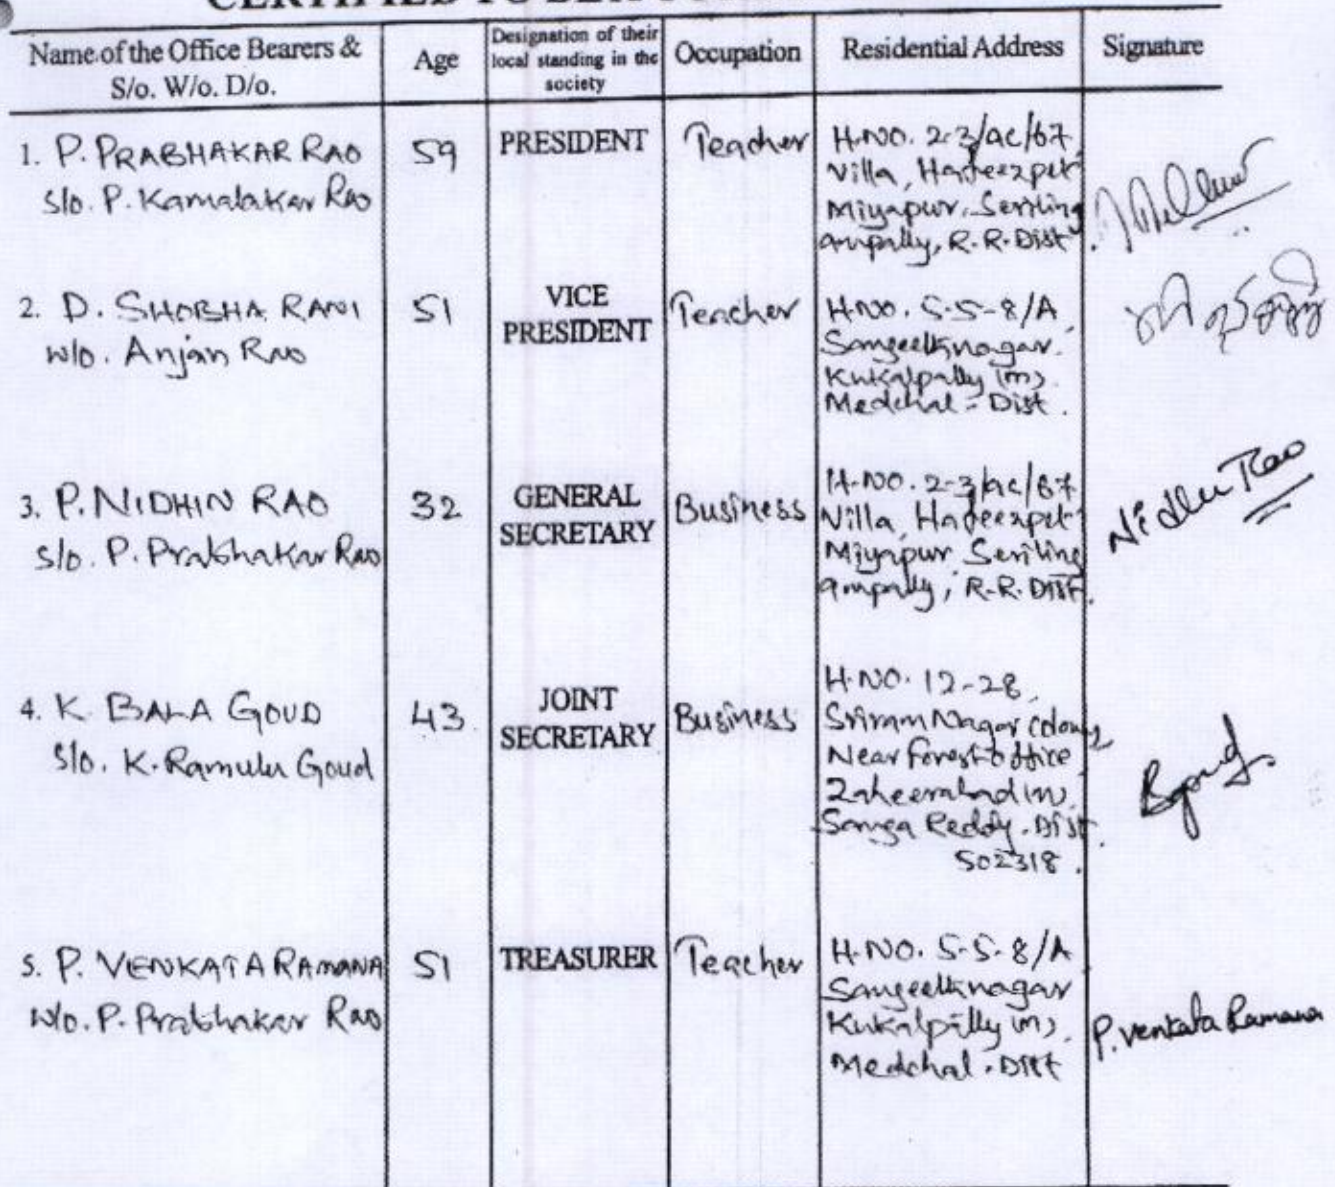 Name of the Office Bearers & S/o. W/o. D/o.
Age
Designation of their local standing in the society
Occupation
Residential Address
Signature
1. P. PRABHAKAR RAO
S/o. P. Kamalakar Rao
59
PRESIDENT
Teacher
H.NO. 2-3/ac/67,
Villa, Hafeezpet
Miyapur, Seriling
ampally, R.R. Dist.
2. D. SHOBHA RANI
W/o. Anjan Rao
51
VICE
PRESIDENT
Teacher
H.NO. 5-5-8/A,
Sangeethnagar.
Kukatpally (m),
Medchal - Dist.
3. P. NIDHIN RAO
S/o. P. Prabhakar Rao
32
GENERAL
SECRETARY
Business
H.NO. 2-3/ac/67
Villa, Hafeezpet
Miyapur, Seriling
ampally, R.R. Dist.
Nidhin Rao
4. K. BALA GOUD
S/o. K. Ramulu Goud
43
JOINT
SECRETARY
Business
H.NO. 12-28,
Sriram Nagar colony,
Near Forest office
Zaheerabad (m),
Sanga Reddy. Dist
502318.
5. P. VENKATA RAMANA
W/o. P. Prabhakar Rao
51
TREASURER
Teacher
H.NO. 5-5-8/A
Sangeethnagar
Kukatpally (m),
Medchal. Dist
P. Venkata Ramana